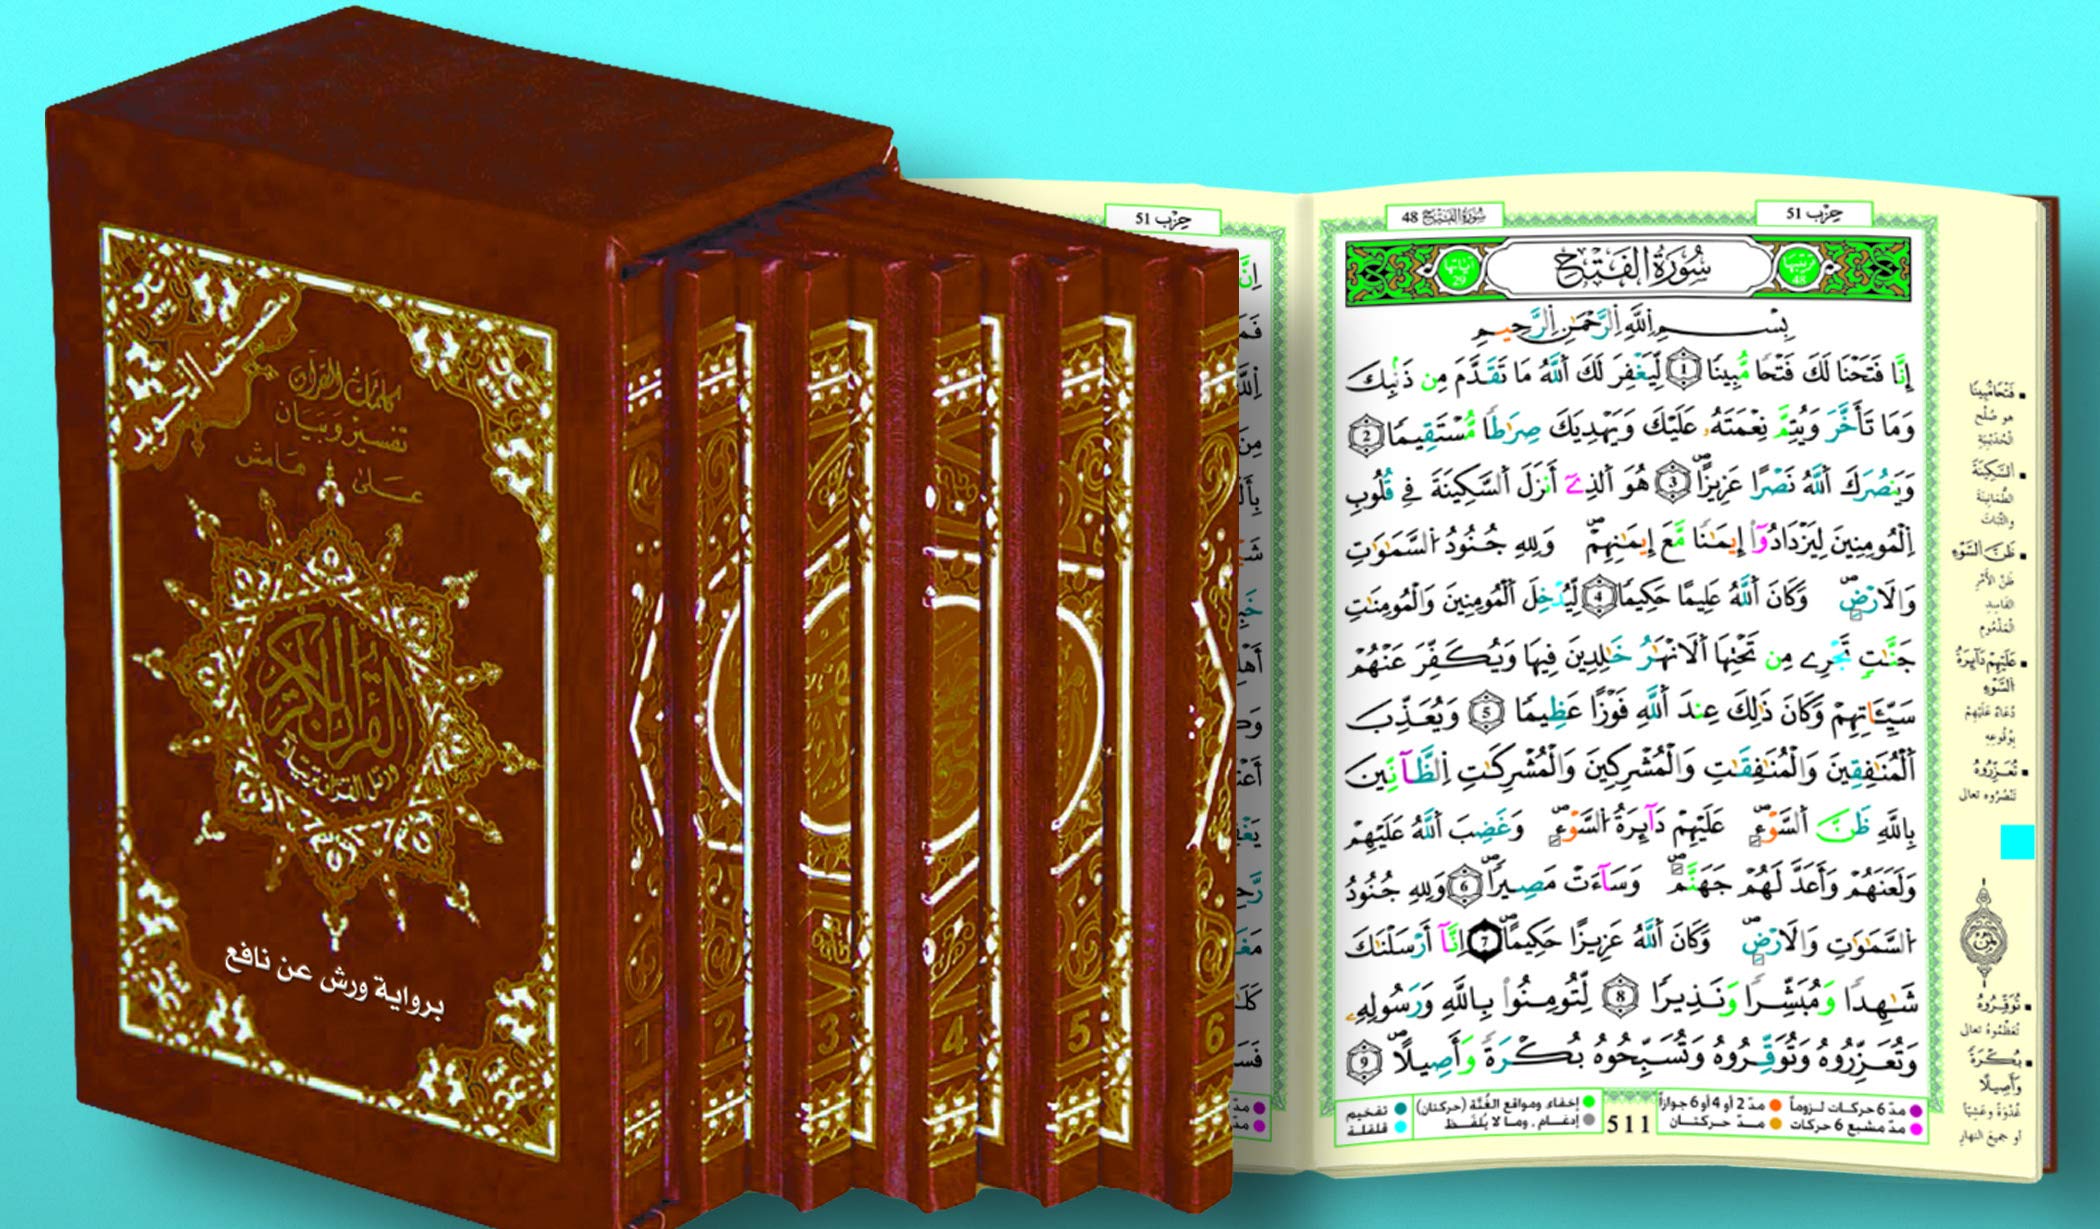 مصحف التجويد
كلمات القرآن
تفسير وبيان
على هامش
القرآن الكريم
ورتل القرآن ترتيلا
برواية ورش عن نافع
1 2 3 4 5 6
حِزْب 51
حِزْب 51
سُورَةُ الفَتْح 48
ترتيبها 48
سُورَةُ الفَتْحِ
آياتها 29
بِسْمِ اِللَّهِ اِلرَّحْمَٰنِ اِلرَّحِيمِ
إِنَّا فَتَحْنَا لَكَ فَتْحٗا مُّبِينٗا 1 لِّيَغْفِرَ لَكَ اَللَّهُ مَا تَقَدَّمَ مِن ذَنۢبِكَ
وَمَا تَأَخَّرَ وَيُتِمَّ نِعْمَتَهُۥ عَلَيْكَ وَيَهْدِيَكَ صِرَٰطٗا مُّسْتَقِيمٗا 2
وَيَنصُرَكَ اَللَّهُ نَصْرًا عَزِيزًاۖ 3 هُوَ اَلذِےٓ أَنزَلَ اَلسَّكِينَةَ فِے قُلُوبِ
اِلْمُومِنِينَ لِيَزْدَادُوٓاْ إِيمَٰنٗا مَّعَ إِيمَٰنِهِمْۖ وَلِلهِ جُنُودُ اُلسَّمَٰوَٰتِ
وَالَارْضِۖ وَكَانَ اَللَّهُ عَلِيمًا حَكِيمٗا 4 لِّيُدْخِلَ اَلْمُومِنِينَ وَالْمُومِنَٰتِ
جَنَّٰتٖ تَجْرِے مِن تَحْتِهَا اَلَانْهَٰرُ خَٰلِدِينَ فِيهَا وَيُكَفِّرَ عَنْهُمْ
سَيِّـَٔاتِهِمْ وَكَانَ ذَٰلِكَ عِندَ اَللَّهِ فَوْزًا عَظِيمٗا 5 وَيُعَذِّبَ
اَلْمُنَٰفِقِينَ وَالْمُنَٰفِقَٰتِ وَالْمُشْرِكِينَ وَالْمُشْرِكَٰتِ اِلظَّآنِّينَ
بِاللَّهِ ظَنَّ اَلسَّوْءِۖ عَلَيْهِمْ دَآئِرَةُ اُلسَّوْءِۖ وَغَضِبَ اَللَّهُ عَلَيْهِمْ
وَلَعَنَهُمْ وَأَعَدَّ لَهُمْ جَهَنَّمَۖ وَسَآءَتْ مَصِيرٗاۖ 6 وَلِلهِ جُنُودُ
اُلسَّمَٰوَٰتِ وَالَارْضِۖ وَكَانَ اَللَّهُ عَزِيزًا حَكِيمًاۖ 7 اِنَّآ أَرْسَلْنَٰكَ
شَٰهِدٗا وَمُبَشِّرٗا وَنَذِيرٗا 8 لِّتُومِنُواْ بِاللَّهِ وَرَسُولِهِۦ
وَتُعَزِّرُوهُ وَتُوَقِّرُوهُ وَتُسَبِّحُوهُ بُكْرَةٗ وَأَصِيلًاۖ 9
فَتْحًا مُّبِينًا
هو صُلْح
الحُدَيْبِيَة
السَّكِينَةَ
الطُّمَأنِينَةَ
والثَّبات
ظَنَّ السَّوْءِ
ظَنَّ الأَمْرِ
الفَاسِدِ
المَذْمُوم
عَلَيْهِمْ دَآئِرَةُ
السَّوْءِ
دُعاءٌ عَلَيْهِمْ
بِوُقُوعِهِ
تُعَزِّرُوهُ
تَنْصُرُوه تعالى
ثُمُن
تُوَقِّرُوهُ
تُعَظِّمُوهُ تعالى
بُكْرَةً
وَأَصِيلًا
غُدْوَةً وعَشِيًّا
أو جميعَ النهارِ
مدّ 6 حركات لزوماً
مدّ 2 أو 4 أو 6 جوازاً
مدّ مشبع 6 حركات
مدّ حركتان
511
إخفاء ومواقع الغُنَّة (حركتان)
إدغام، وما لا يُلفَظ
تفخيم
قلقلة